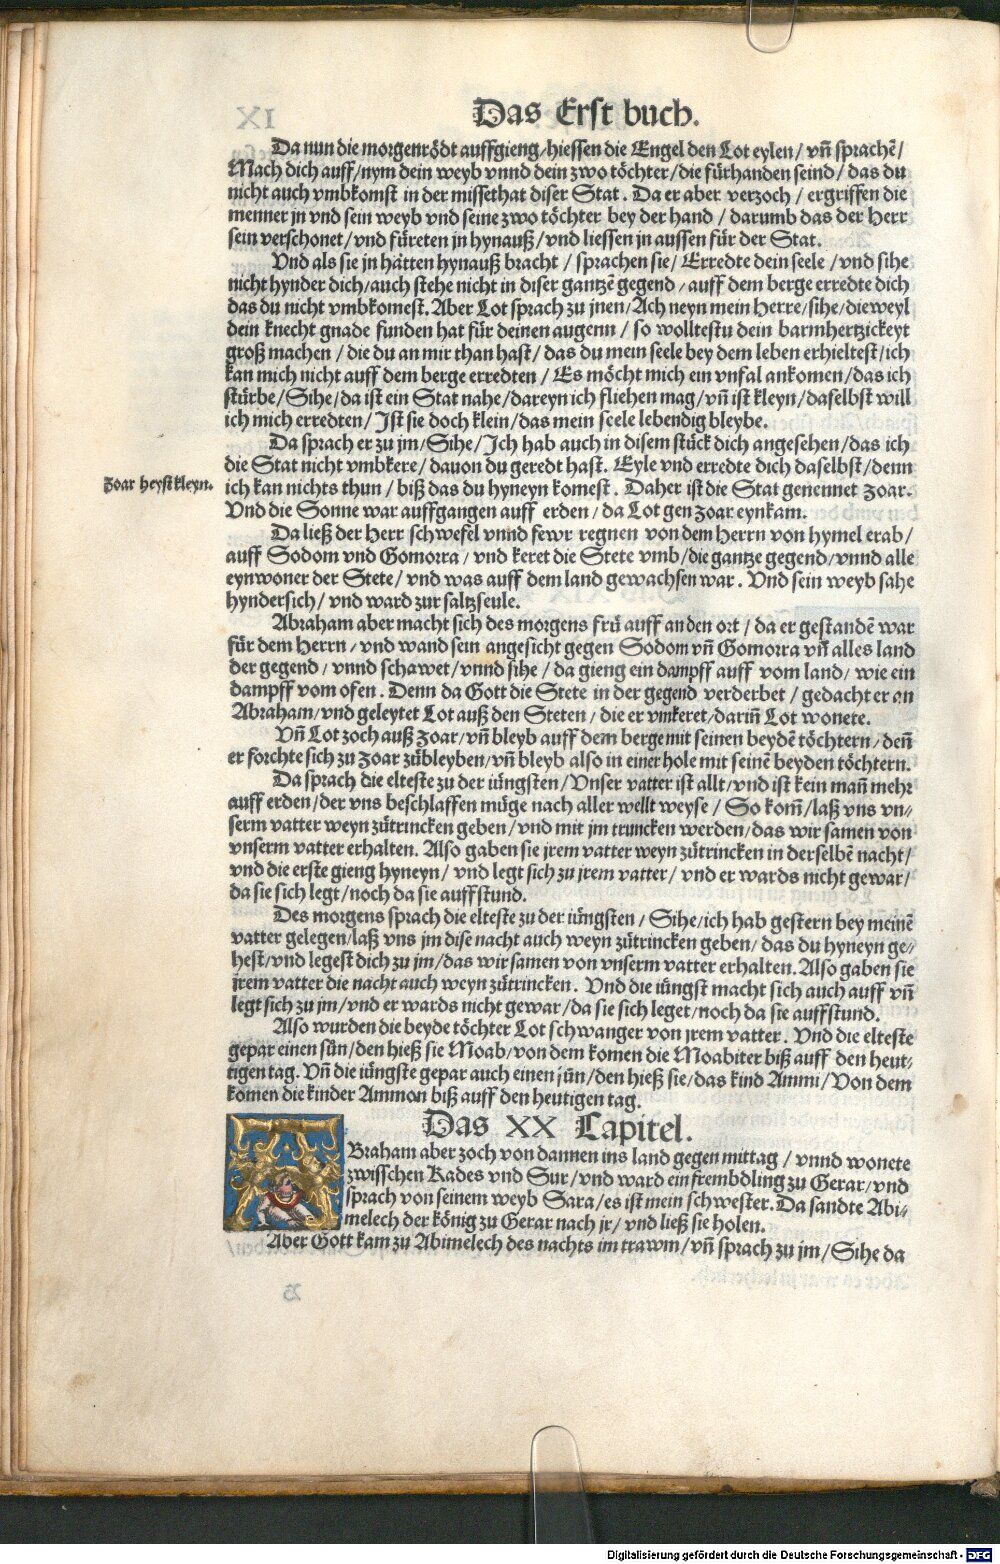 Das Erst buch.
Da nun die morgenrödt auffgieng/hiessen die Engel den Lot eylen/ vñ sprachẽ/
Mach dich auff/nym dein weyb vnnd dein zwo töchter/die fürhanden seind/ das du
nicht auch vmbkomst in der missethat diser Stat. Da er aber verzoch/ ergriffen die
menner jn vnd sein weyb vnd seine zwo töchter bey der hand/ darumb das der Herr
sein verschonet/vnd füreten jn hynauß/vnd liessen jn aussen für der Stat.
Vnd als sie jn hätten hynauß bracht/ sprachen sie/ Erredte dein seele/vnd sihe
nicht hynder dich/auch stehe nicht in diser gantzẽ gegend/ auff dem berge erredte dich
das du nicht vmbkomest. Aber Lot sprach zu jnen/Ach neyn mein Herre/sihe/dieweyl
dein knecht gnade funden hat für deinen augenn/ so wolltestu dein barmhertzickeyt
groß machen/ die du an mir than hast/ das du mein seele bey dem leben erhieltest/ich
kan mich nicht auff dem berge erredten/ Es möcht mich ein vnfal ankomen/das ich
stürbe/Sihe/da ist ein Stat nahe/dareyn ich fliehen mag/vñ ist kleyn/daselbst will
ich mich erredten/Ist sie doch klein/das mein seele lebendig bleybe.
Da sprach er zu jm/Sihe/Ich hab auch in disem stück dich angesehen/das ich
die Stat nicht vmbkere/dauon du geredt hast. Eyle vnd erredte dich daselbst/denn
Zoar heyst kleyn.
ich kan nichts thun/ biß das du hyneyn komest. Daher ist die Stat genennet Zoar.
Vnd die Sonne war auffgangen auff erden/da Lot gen Zoar eynkam.
Da ließ der Herr schwefel vnnd fewr regnen von dem Herrn von hymel erab/
auff Sodom vnd Gomorra/ vnd keret die Stete vmb/die gantze gegend/vnnd alle
eynwoner der Stete/ vnd was auff dem land gewachsen war. Vnd sein weyb sahe
hyndersich/ vnd ward zur saltzseule.
Abraham aber macht sich des morgens frü auff an den ort/ da er gestandẽ war
für dem Herrn/ vnd wand sein angesicht gegen Sodom vñ Gomorra vñ alles land
der gegend/ vnnd schawet/vnnd sihe/ da gieng ein dampff auff vom land/ wie ein
dampff vom ofen. Denn da Gott die Stete in der gegend verderbet/ gedacht er an
Abraham/vnd geleytet Lot auß den Steten/ die er vmkeret/dariñ Lot wonete.
Vñ Lot zoch auß Zoar/vñ bleyb auff dem berge mit seinen beydẽ töchtern/ deñ
er forchte sich zu Zoar zůbleyben/vñ bleyb also in einer hole mit seinẽ beyden töchtern.
Da sprach die elteste zu der iüngsten/ Vnser vatter ist allt/vnd ist kein mañ mehr
auff erden/der vns beschlaffen müge nach aller wellt weyse/ So kom̃/laß vns vn-
serm vatter weyn zůtrincken geben/vnd mit jm truncken werden/das wir samen von
vnserm vatter erhalten. Also gaben sie jrem vatter weyn zůtrincken in derselbẽ nacht/
vnd die erste gieng hyneyn/ vnd legt sich zu jrem vatter/ vnd er wards nicht gewar/
da sie sich legt/noch da sie auffstund.
Des morgens sprach die elteste zu der iüngsten/ Sihe/ich hab gestern bey meinẽ
vatter gelegen/laß vns jm dise nacht auch weyn zůtrincken geben/ das du hyneyn ge-
hest/vnd legest dich zu jm/das wir samen von vnserm vatter erhalten. Also gaben sie
jrem vatter die nacht auch weyn zůtrincken. Vnd die iüngst macht sich auch auff vñ
legt sich zu jm/vnd er wards nicht gewar/da sie sich leget/noch da sie auffstund.
Also wurden die beyde töchter Lot schwanger von jrem vatter. Vnd die elteste
gepar einen sůn/den hieß sie Moab/von dem komen die Moabiter biß auff den heut-
tigen tag. Vñ die iüngste gepar auch einen sůn/den hieß sie/das kind Ammi/Von dem
komen die kinder Ammon biß auff den heutigen tag.
Das XX Capitel.
Braham aber zoch von dannen ins land gegen mittag/ vnnd wonete
zwisschen Kades vnd Sur/vnd ward ein frembdling zu Gerar/vnd
sprach von seinem weyb Sara/es ist mein schwester. Da sandte Abi-
melech der könig zu Gerar nach jr/ vnd ließ sie holen.
Aber Gott kam zu Abimelech des nachts im trawm/vñ sprach zu jm/Sihe da
Digitalisierung gefördert durch die Deutsche Forschungsgemeinschaft - DFG